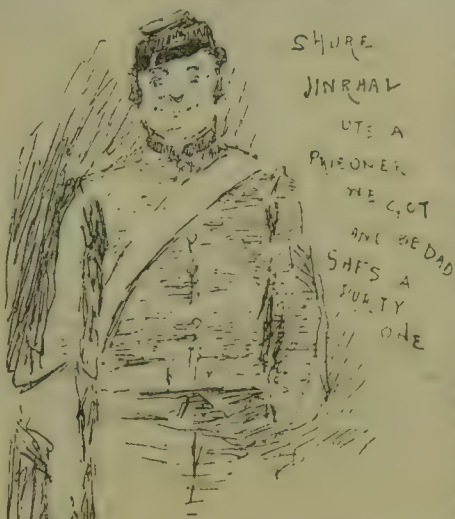 SHURE
JINRHAL
UTS A
PRISONER
WE GOT
AND BEDAD
SHE'S A
PURTY
ONE